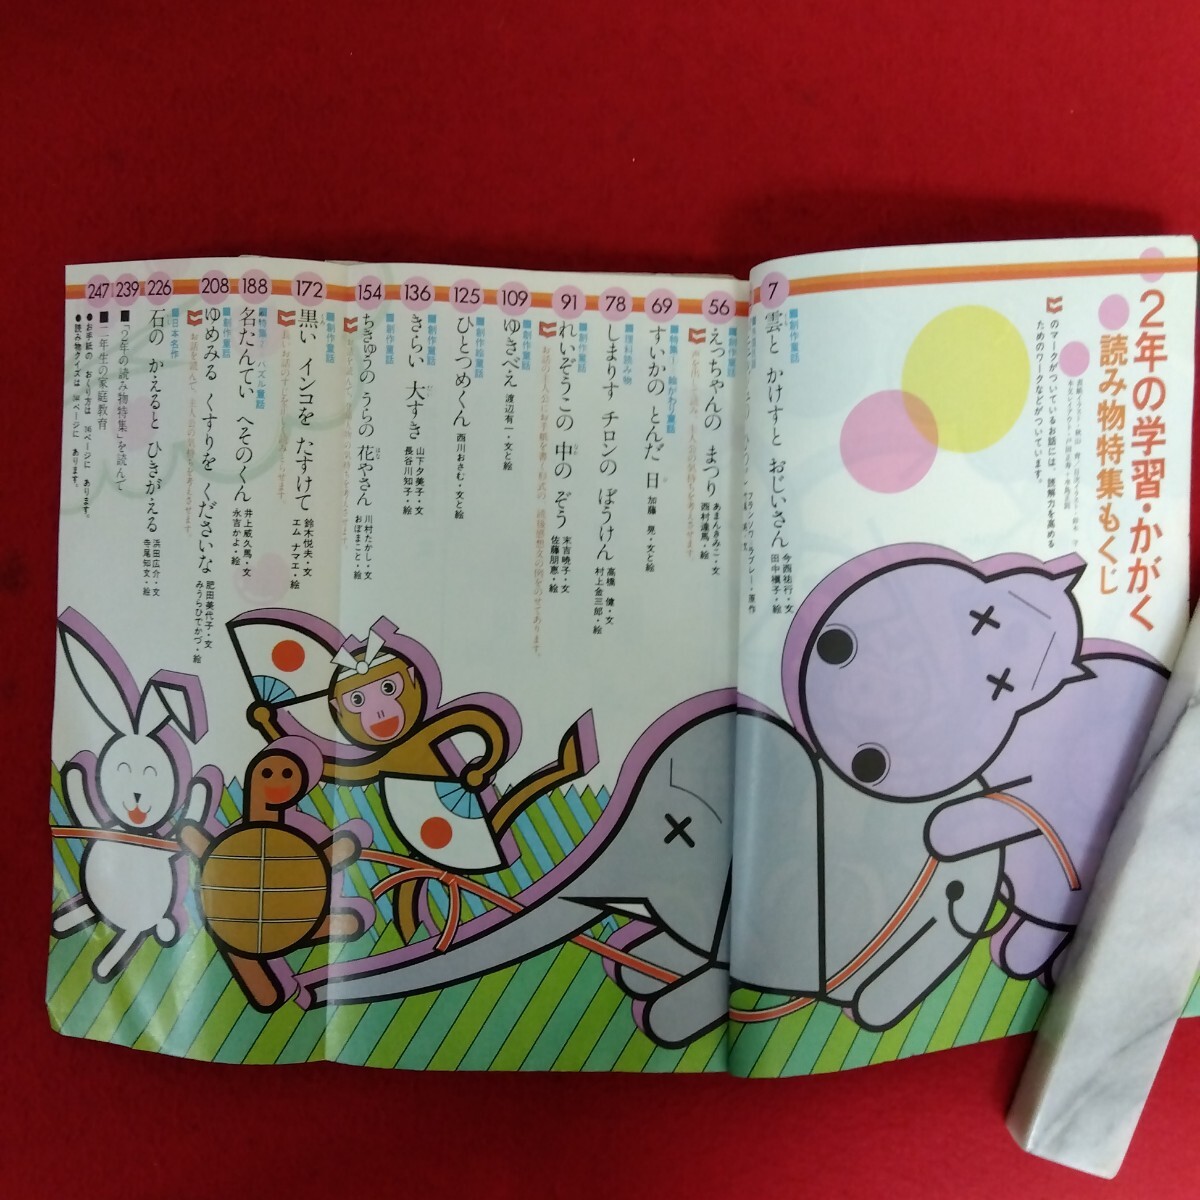 2年の学習・かがく
読み物特集もくじ
のマークがついているお話には、読解力を高める
ためのワークなどがついています。
7
■創作童話
雲と かけすと おじいさん
今西祐行・文
田中槇子・絵
フランソワ・ラブレー・原作
56
■創作童話
えっちゃんの まつり
あまんきみこ・文
西村達馬・絵
69
■特集 絵かわり童話
すいかの とんだ 日
加藤 晃・文と絵
78
■理科読み物
しまりす チロンの ぼうけん
高橋 健・文
村上金三郎・絵
91
■創作童話
れいぞうこの 中の ぞう
末吉暁子・文
佐藤朋恵・絵
お話の主人公に手紙を書く形式の、読後感想文の例をのせてあります。
109
ゆきべえ
渡辺有一・文と絵
125
■創作絵童話
ひとつめくん
西川おさむ・文と絵
136
■創作童話
きらい 大すき
山下夕美子・文
長谷川知子・絵
154
■創作童話
ちきゅうの うらの 花やさん
川村たかし・文
おぼまこと・絵
172
■創作童話
黒い インコを たすけて
鈴木悦夫・文
エム ナマエ・絵
188
■特集 パズル童話
名たんてい へそのくん
井上威久馬・文
永吉かよ・絵
208
■創作童話
ゆめみる くすりを くださいな
肥田美代子・文
みうらひでかづ・絵
お話を読んで、主人公の気持ちを考えさせます。
226
■日本名作
石の かえると ひきがえる
浜田広介・文
寺尾知文・絵
239
■「2年の読み物特集」を読んで
247
■二年生の家庭教育
●お手紙の おくり方は ページに あります。
●読み物クイズは ページに あります。